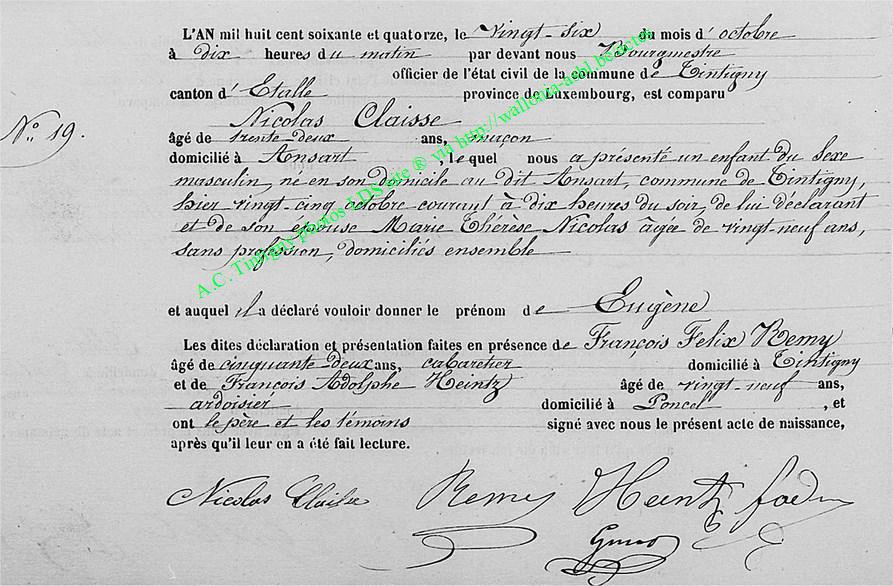 L'AN mil huit cent soixante et quatorze, le Vingt-six du mois d'octobre
à dix heures du matin par devant nous Bourgmestre
officier de l'état civil de la commune de Tintigny
canton d'Etalle province de Luxembourg, est comparu
Nicolas Claisse
No. 19.
âgé de trente deux ans, maçon
domicilié à Ansart, lequel nous a présenté un enfant du sexe
masculin, né en son domicile au dit Ansart, commune de Tintigny,
hier vingt-cinq octobre courant à dix heures du soir, de lui déclarant
et de son épouse Marie Thérèse Nicolas âgée de vingt-neuf ans,
sans profession, domiciliés ensemble
et auquel il a déclaré vouloir donner le prénom de Eugène
Les dites déclaration et présentation faites en présence de François Felix Remy
âgé de cinquante deux ans, cabaretier domicilié à Tintigny
et de François Adolphe Heintz âgé de vingt-neuf ans,
ardoisier domicilié à Poncel, et
ont le père et les témoins signé avec nous le présent acte de naissance,
après qu'il leur en a été fait lecture.
Nicolas Claisse Remy Heintz
A.C. Tintigny photos LDS site ® via http://wallonia-asbl.be